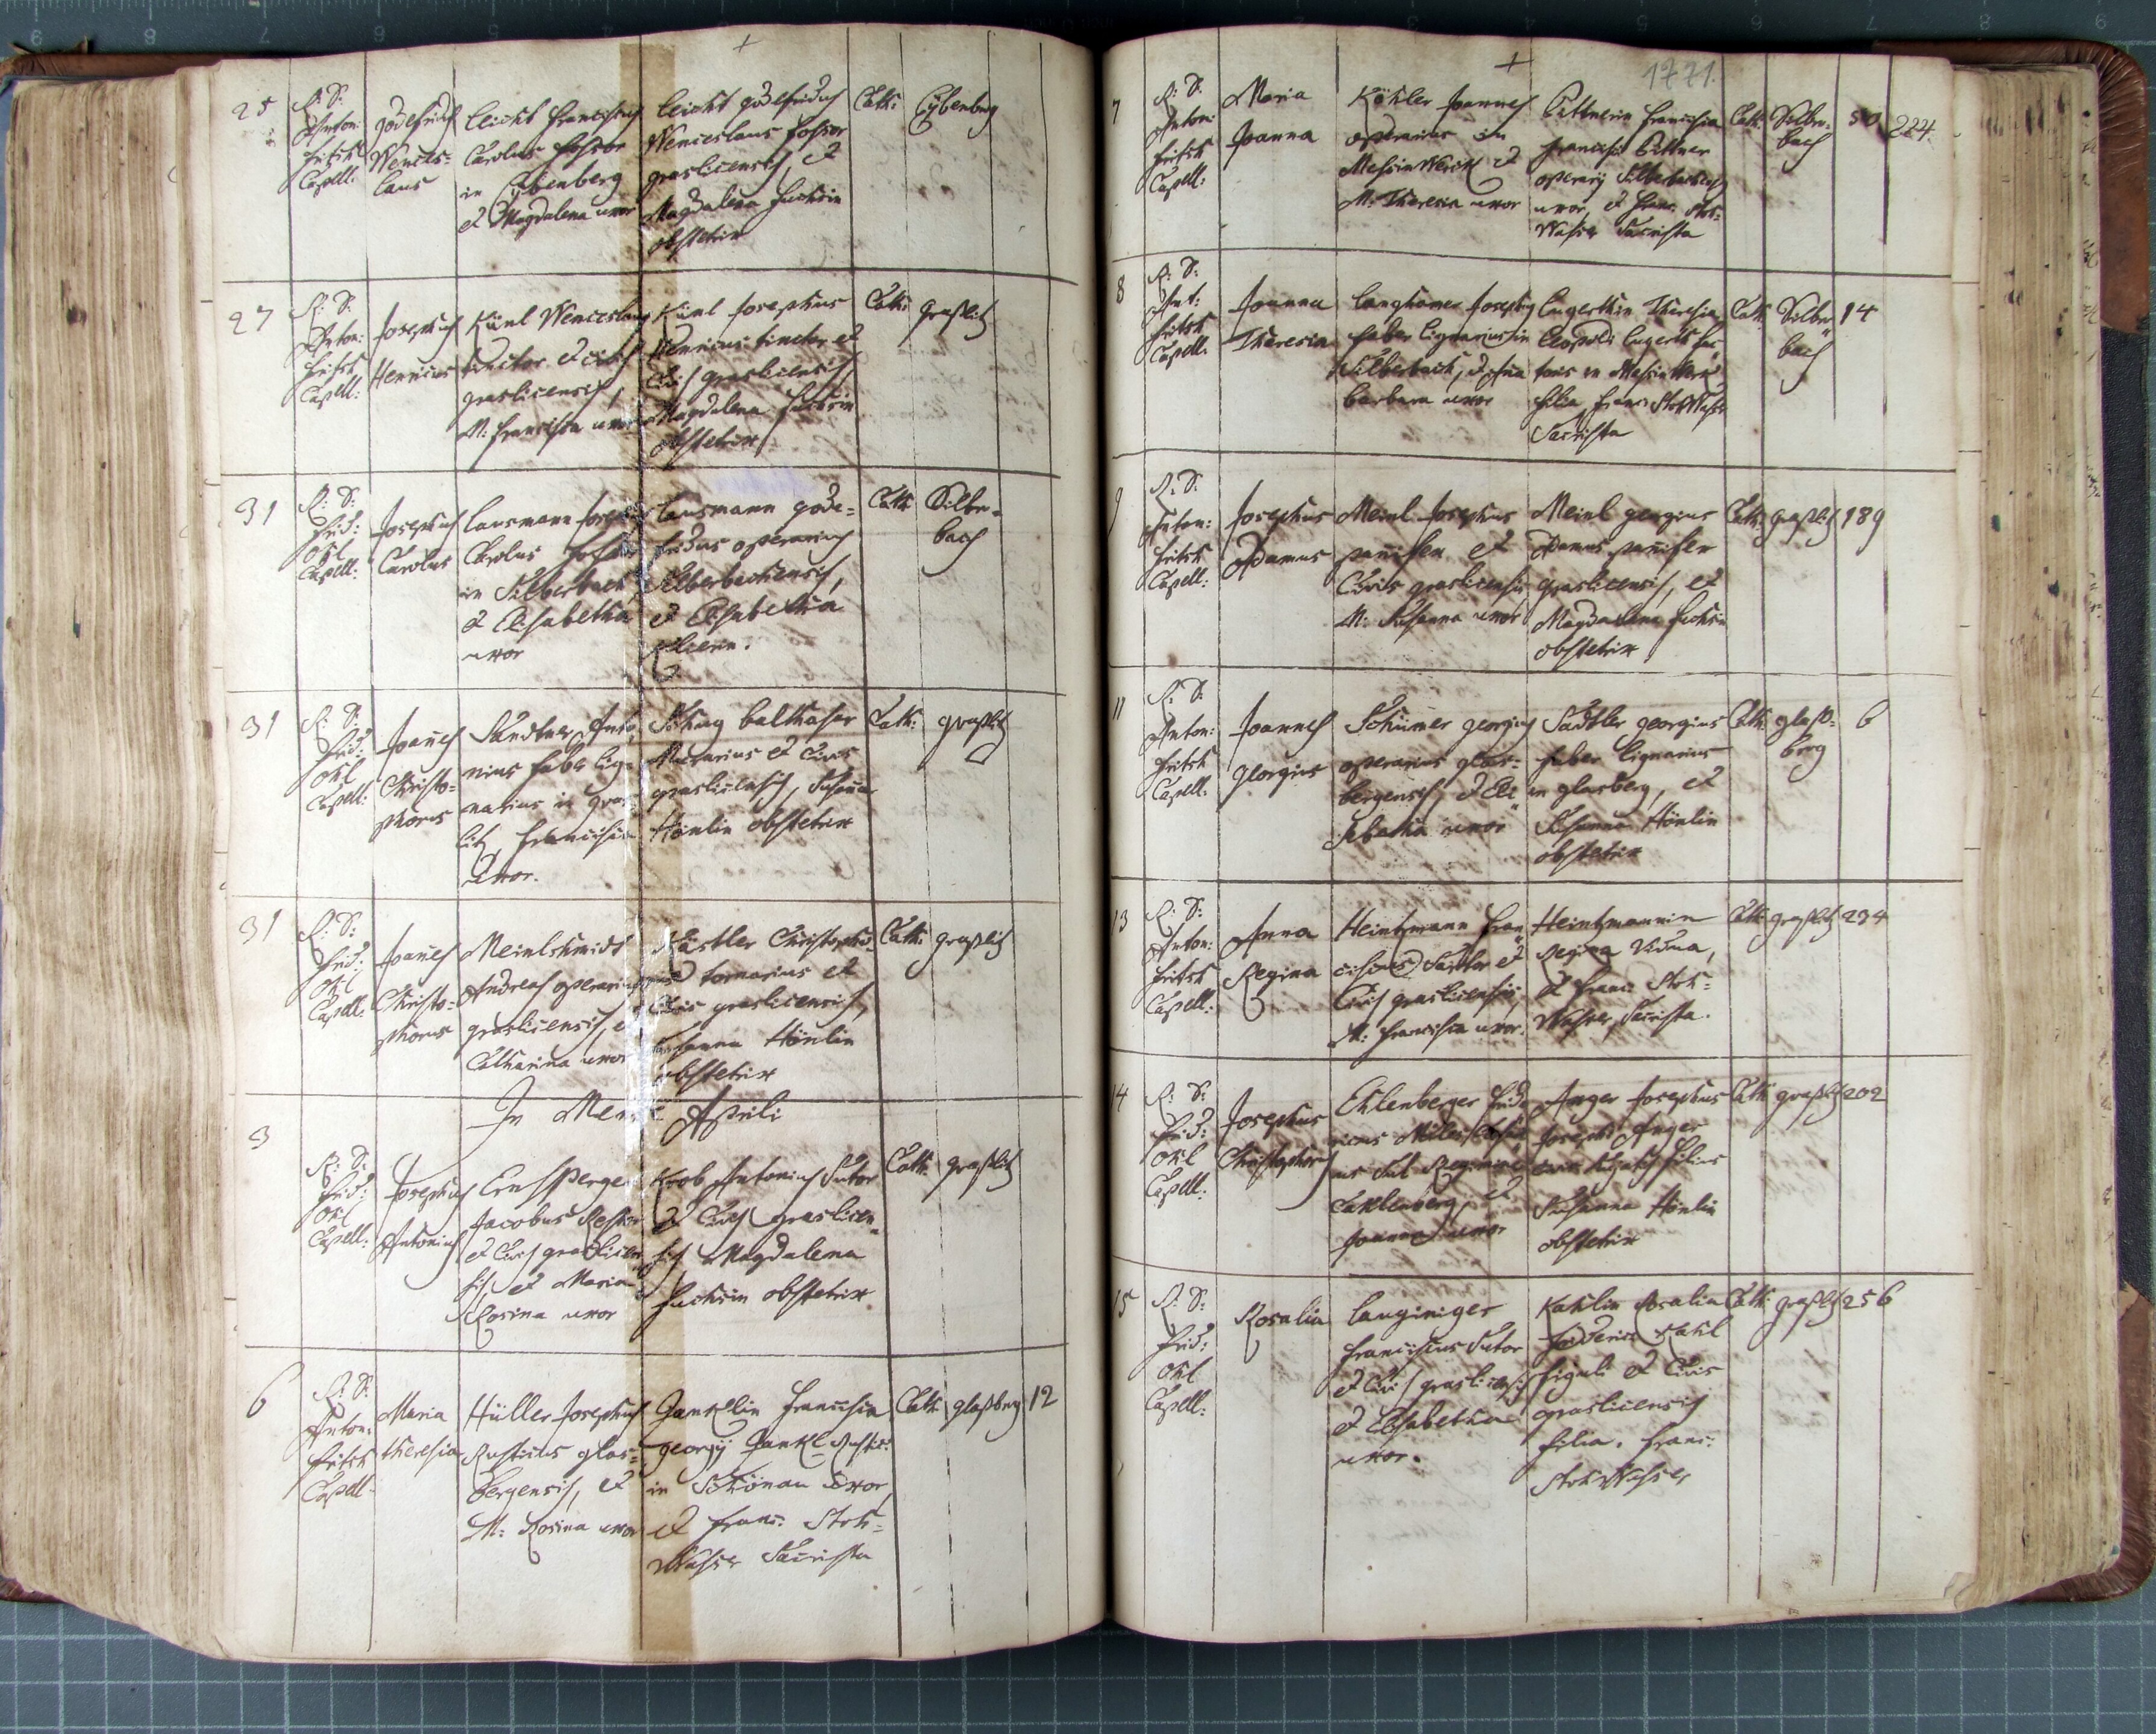 25
R: D:
Anton:
Fritsch
Capell:
Godefrid
Wences=
laus
Leicht Franciscus
Carolus fossor
in Eybenberg
et Magdalena uxor
Leicht Godefridus
Wenceslaus fossor
graslicensis, et
Magdalena Fuchsin
obstetrix
Cath:
Eybenberg
27
R: D:
Anton:
Fritsch
Capell:
Josephus
Henricus
Künl Wenceslaus
tinctor et civis
graslicensis,
M: Francisca uxor
Künl Josephus
Henricus tinctor et
Civis graslicensis,
Magdalena Fuchsin
obstetrix
Cath:
Graslitz
31
R: D:
Frid:
Okl
Capell:
Josephus
Carolus
Lausmann Josephus
Carolus fossor
in Silberbach,
et Elisabetha
uxor
Lausmann Gode=
fridus operarius
Silberbachensis,
et Elisabetha
Cath:
Silber=
bach
31
R: D:
Frid:
Okl
Capell:
Joanes
Christo=
phorus
Sandtner Anto
nius faber lig=
narius in Gras=
litz, Francisca
Uxor.
Balthasar
Murarius et Civis
graslicensis, Susanna
Hönlin obstetrix
Cath:
Graslitz
31
R: D:
Frid:
Okl
Capell:
Joanes
Christo=
phorus
Meinlschmidt
Andreas operarius
graslicensis, et
Catharina uxor
Kästler Christopho=
rus tornarius et
Civis graslicensis,
Susanna Hönlin
obstetrix
Cath:
Graslitz
In Mense Aprili
3
R: D:
Frid:
Okl
Capell:
Josephus
Antonius
Ernstperger
Jacobus Restior
et Civis graslicen
sis, et Maria
Rosina uxor
Krob Antonius Sutor
et Civis graslicen
sis Magdalena
Fuchsin obstetrix
Cath:
Graslitz
6
R: D:
Anton:
Fritsch
Capell:
Maria
Theresia
Hüller Josephus
Rusticus glas=
bergensis, et
M: Rosina uxor
Janklin Francisca
Georgy Jankl Rustic:
in Schönau Uxor,
et Franc: Stok=
Wasser Sacrista
Cath:
Glasberg
12
1771.
7
R: D:
Anton:
Fritsch
Capell:
Maria
Joanna
Köhler Joannes
operarius in
MessinWerck et
M: Theresia uxor
Bittnerin Francisca
Francisci Bittner
operarij Silberbachensis
uxor, et Franc: Stok=
Wasser Sacrista
Cath:
Silber=
bach
50
224.
8
R: D:
Ant:
Fritsch
Capell:
Joanna
Theresia
Langhamer Josephus
faber lignarius in
Silberbach, et Anna
Barbara uxor
Lugerthin Theresia
Leopoldi Lugerth fac
toris in MessinWerck
filia Franc: StokWasser
Sacrista
Cath:
Silber
bach
14
9
R: D:
Anton:
Fritsch
Capell:
Josephus
Adamus
Meinl Josephus
panifex et
Civis graslicensis
M: Susanna uxor
Meinl Georgius
Adamus panifex
graslicensis, et
Magdalena Fuchsin
obstetrix
Cath:
Graslitz
189
11
R: D:
Anton:
Fritsch
Capell:
Joannes
Georgius
Schümer Georgius
operarius glas=
bergensis, et Eli
sabetha uxor
Sattler Georgius
faber lignarius
in glasberg, et
Susanna Hönlin
obstetrix
Cath:
Glaß=
berg
6
13
R: D:
Anton:
Fritsch
Capell:
Anna
Regina
Heintzmann Fran
ciscus Sartor et
Civis graslicensis,
M: Francisca uxor.
Heintzmannin
Regina Vidua,
et Franc: Stok=
Wasser Sacrista.
Cath:
Graslitz
234
14
R: D:
Frid:
Okl
Capell:
Josephus
Christophorus
Ehlenberger Fride
ricus Miles
sub Regimine
Caklenberg, et
Joanna uxor
Anger Josephus
Josephi Anger
filius
Susanna Hönlin
obstetrix
Cath:
Graslitz
202
15
R: D:
Frid:
Okl
Capell:
Rosalia
Langiniger
Franciscus Sutor
et Civis graslicensis
et Elisabetha
uxor.
Kahlin Rosalia
Friderici Kahl
figuli et Civis
graslicensis
filia. Franc:
StokWasser
Cath:
Graslitz
256